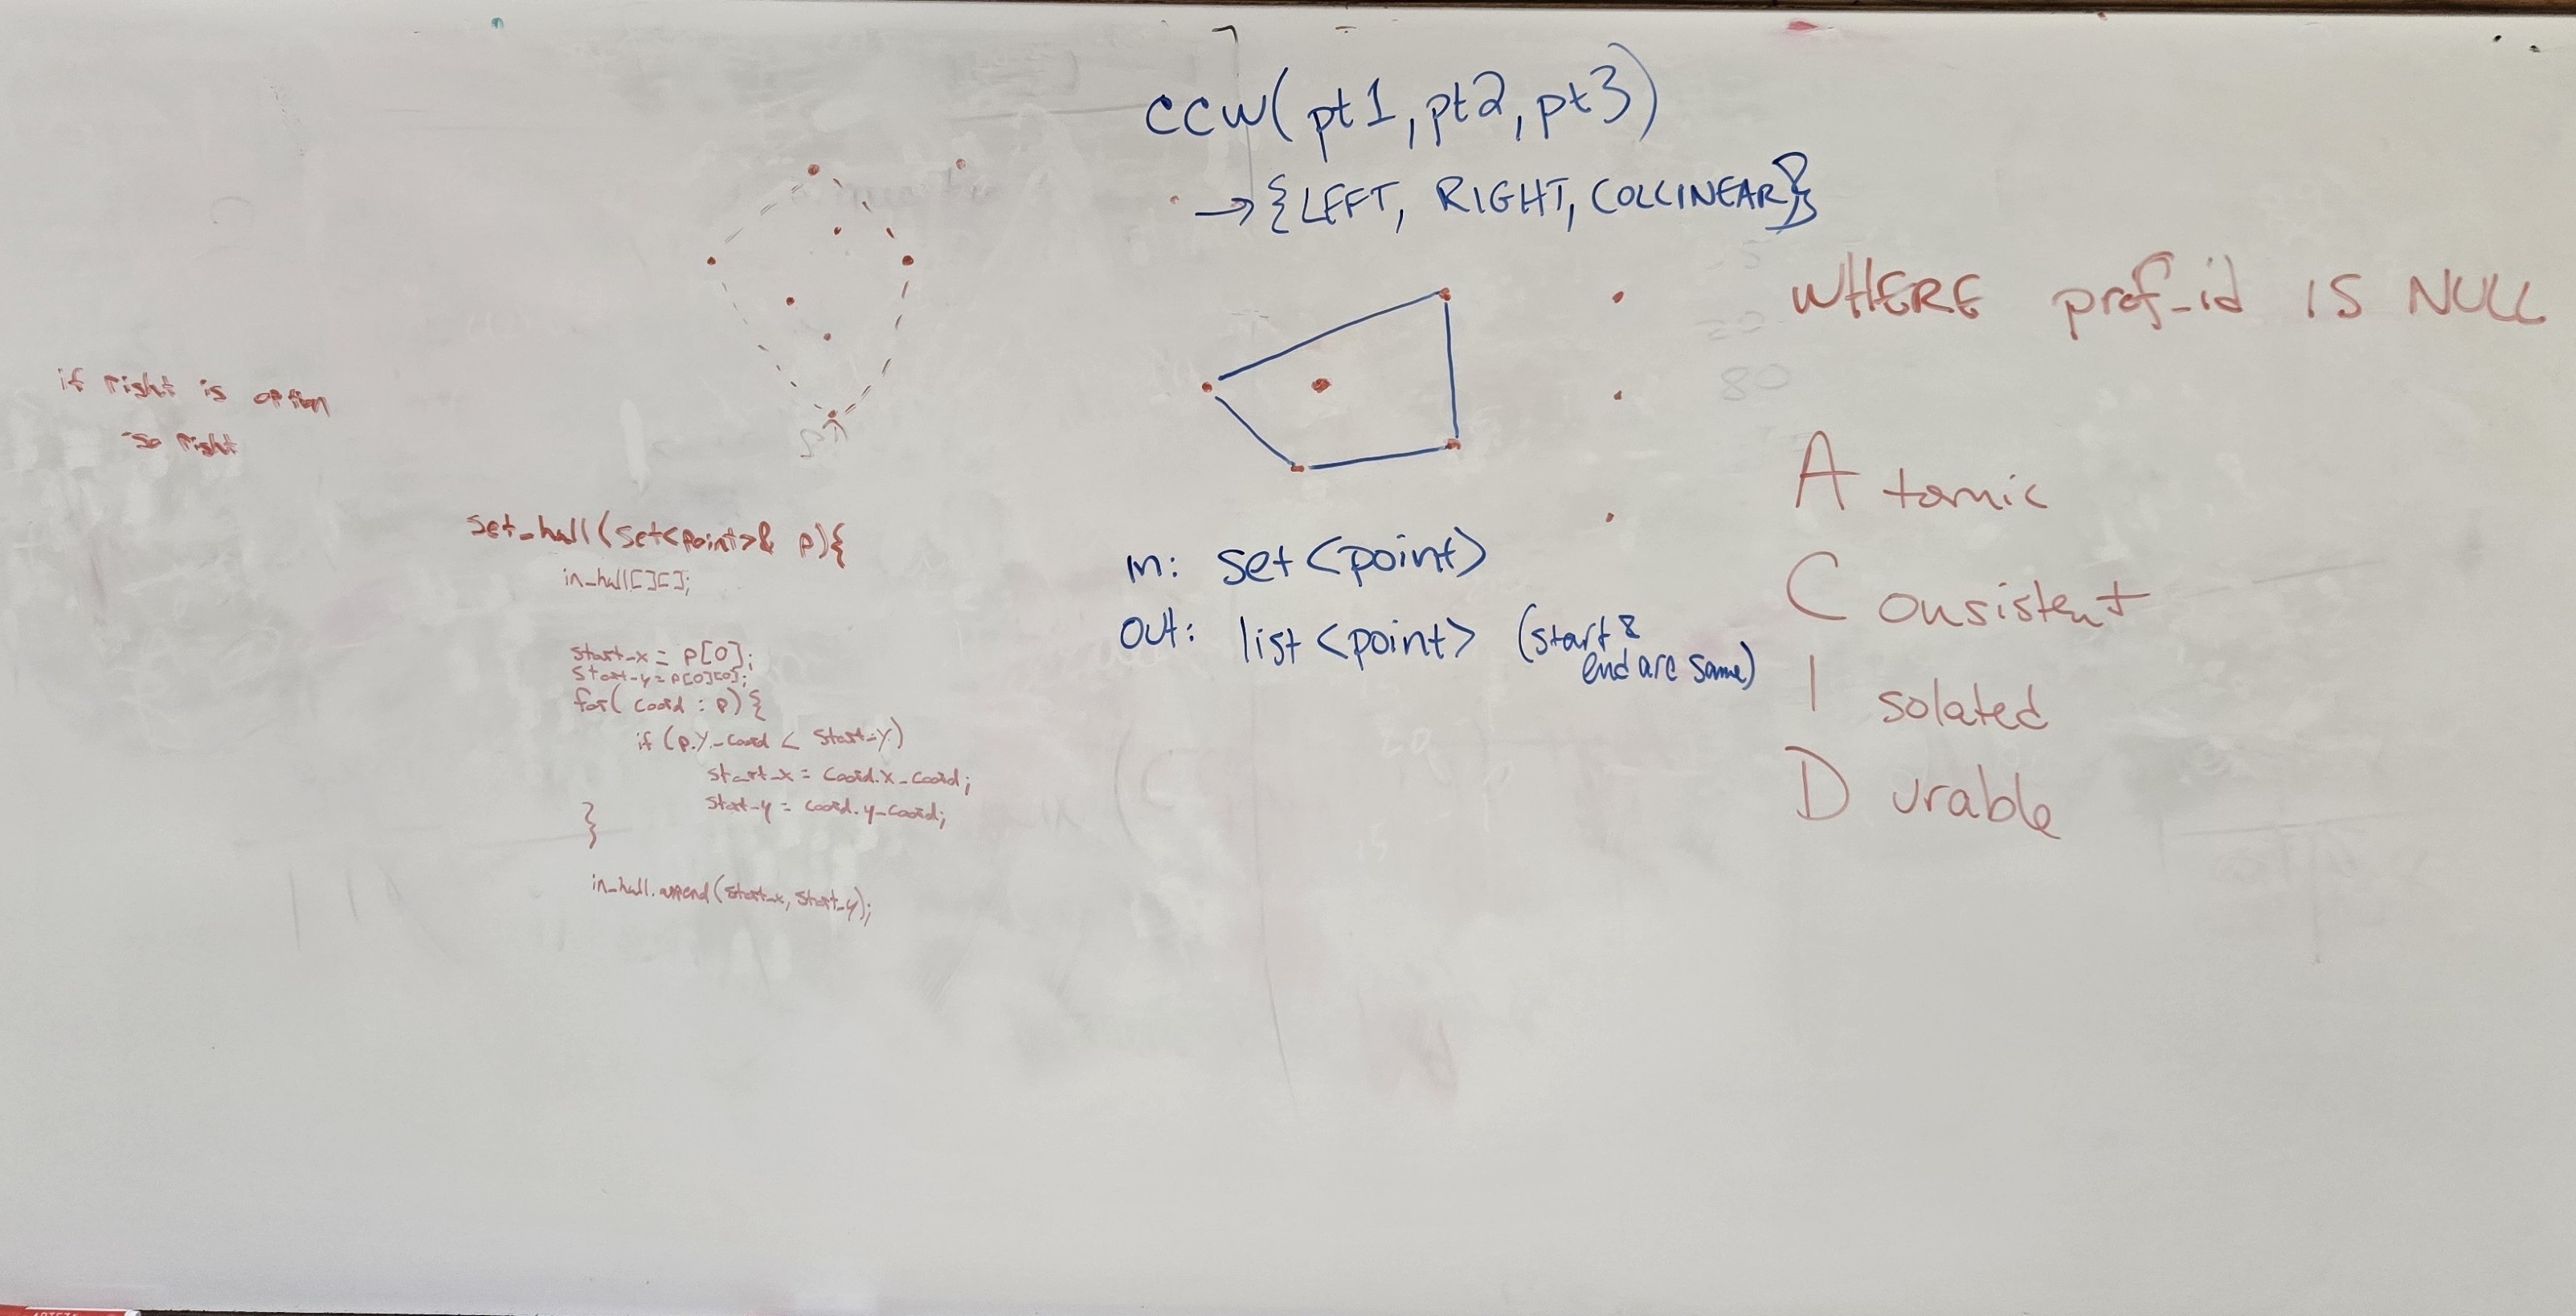 CCW(pt1, pt2, pt3)
→ {LEFT, RIGHT, COLLINEAR}
WHERE prof_id IS NULL
if right is option
go right
A tomic
C onsistent
I solated
D urable
set_hull(set<point>& p){
in_hull[][];
start_x = p[0];
start_y = p[0][0];
for( coord : p){
if (p.y_coord < start_y)
start_x = coord.x_coord;
start_y = coord.y_coord;
}
in_hull.append(start_x, start_y);
in: set<point>
out: list<point> (start &
end are same)
80